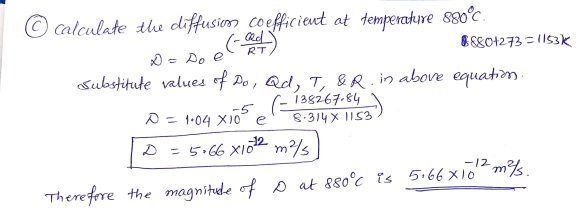 ⓒ calculate the diffusion coefficient at temperature 880°C.
D = D₀ e^(-Qd/RT)
880+273 = 1153K
Substitute values of D₀, Qd, T, & R. in above equation.
D = 1.04 X10⁻⁵ e^(- 138267.84 / 8.314 X 1153)
D = 5.66 X10⁻¹² m²/s
Therefore the magnitude of D at 880°C is 5.66 X 10⁻¹² m²/s.